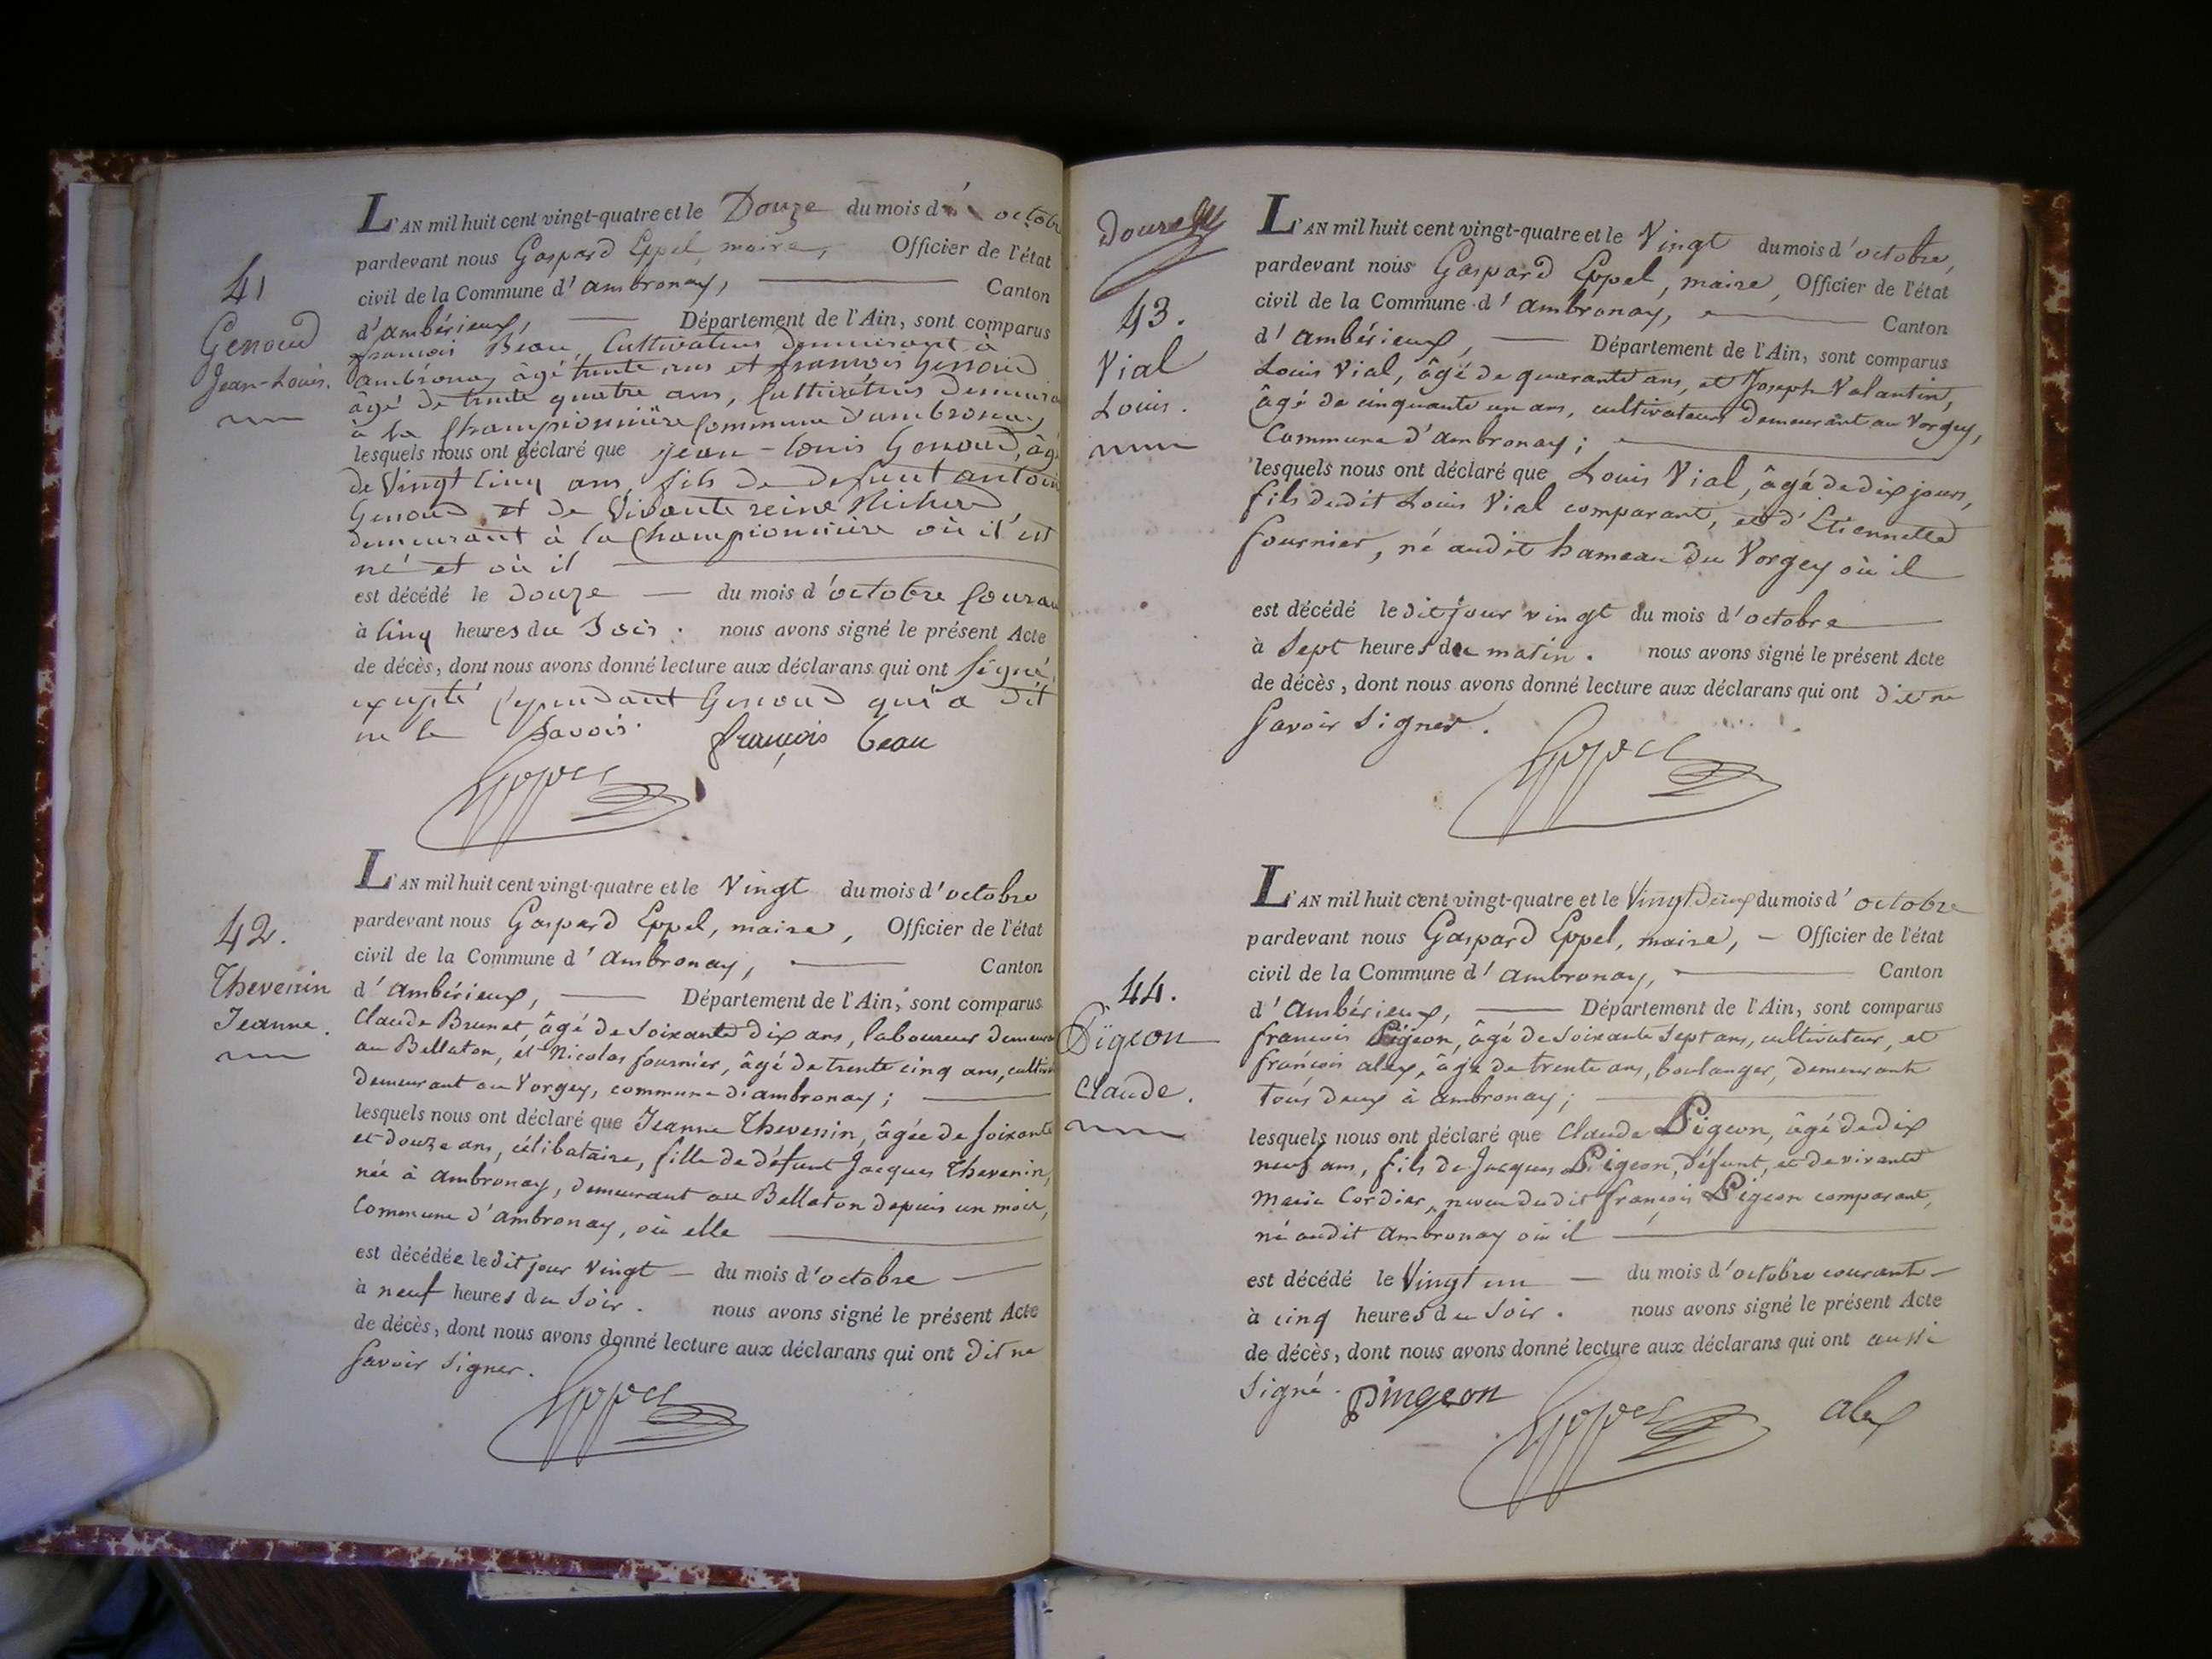 41
Genoud
Jean-Louis.
L'AN mil huit cent vingt-quatre et le Douze du mois d' octobre
pardevant nous Gaspard Eppel, maire, Officier de l'état
civil de la Commune d'ambronay, Canton
d'ambérieux, Département de l'Ain, sont comparus
françois Beau Cultivateur demeurant à
ambronay âgé trente ans et françois Genoud
âgé de trente quatre ans, Cultivateur demeura
à la Championnière Commune d'ambronay
lesquels nous ont déclaré que jean-louis Genoud, âgé
de Vingt Cinq ans, fils de defunt antoin
Genoud et de Vivante reine
demeurant à la Championnière où il est
né et où il
est décédé le Douze du mois d'octobre Couran
à Cinq heures du Soir. nous avons signé le présent Acte
de décès, dont nous avons donné lecture aux déclarans qui ont Signé,
excepté Cependant Genoud qui a dit
ne le Savoir. françois beau
Eppel
42.
Thevenin
Jeanne.
L'AN mil huit cent vingt-quatre et le Vingt du mois d'octobre
pardevant nous Gaspard Eppel, maire, Officier de l'état
civil de la Commune d'ambronay, Canton
d'ambérieux, Département de l'Ain, sont comparus
Claude Brunet, âgé de Soixante dix ans, laboureur demeura
au Bellaton, et Nicolas fournier, âgé de trente cinq ans, cultiv
demeurant au Vorgey, commune d'ambronay;
lesquels nous ont déclaré que Jeanne Thevenin, âgée de soixante
et douze ans, célibataire, fille de défunt Jacques Thevenin,
née à ambronay, demeurant au Bellaton depuis un mois,
Commune d'ambronay, où elle
est décédée ledit jour vingt du mois d'octobre
à neuf heures du soir. nous avons signé le présent Acte
de décès, dont nous avons donné lecture aux déclarans qui ont dit ne
Savoir signer.
Eppel
43.
Vial
Louis.
L'AN mil huit cent vingt-quatre et le Vingt du mois d'octobre,
pardevant nous Gaspard Eppel, maire, Officier de l'état
civil de la Commune d'ambronay, Canton
d'ambérieux, Département de l'Ain, sont comparus
Louis Vial, âgé de quarante ans, et Joseph Valantin,
âgé de cinquante un ans, cultivateurs demeurant au Vorgey,
Commune d'ambronay;
lesquels nous ont déclaré que Louis Vial, âgé de dix jours,
fils dudit Louis Vial comparant, et d'Etiennette
fournier, né audit hameau du Vorgey où il
est décédé ledit jour vingt du mois d'octobre
à Sept heures du matin. nous avons signé le présent Acte
de décès, dont nous avons donné lecture aux déclarans qui ont dit ne
Savoir signer.
Eppel
44.
Pigeon
Claude.
L'AN mil huit cent vingt-quatre et le Vingt deux du mois d' octobre
pardevant nous Gaspard Eppel, maire, Officier de l'état
civil de la Commune d'ambronay, Canton
d'ambérieux, Département de l'Ain, sont comparus
françois Pigeon, âgé de soixante sept ans, cultivateur, et
françois alex, âgé de trente ans, boulanger, demeurants
tous deux à ambronay;
lesquels nous ont déclaré que Claude Pigeon, âgé de dix
neuf ans, fils de Jacques Pigeon, défunt, et de vivante
Marie Cordier, neveu dudit françois Pigeon comparant,
né audit ambronay où il
est décédé le Vingt un du mois d'octobre courant
à cinq heures du soir. nous avons signé le présent Acte
de décès, dont nous avons donné lecture aux déclarans qui ont aussi
signé. pingeon Eppel alex